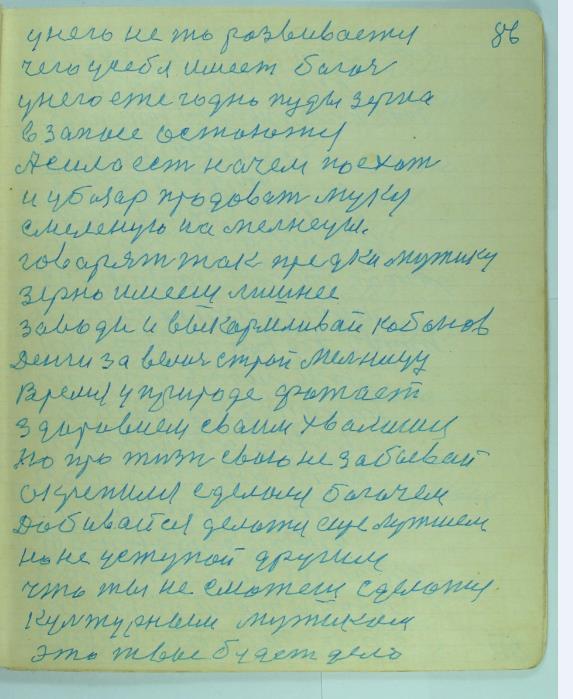 86
у него не то розвиваетси
чего учебя имеет богач
у него ежегодно пуды зерна
в запасе остаютси
А если ест на чем поехат
и у базар продоват муку
смеленую на мелнецы.
говарят так предки мужику
зерно имееш лишнее
заводи и выкармливай кабанов
Денги за
строй Мелницу
Время у природе
здоровием своим хвалиши
Но про жизн свою не забывай
окрепился сделался богачем
Добивайтся делатся еще лутшем
но не уступай другим
что ты не сможеш сделатся
културным мужиком
это твое будет дело